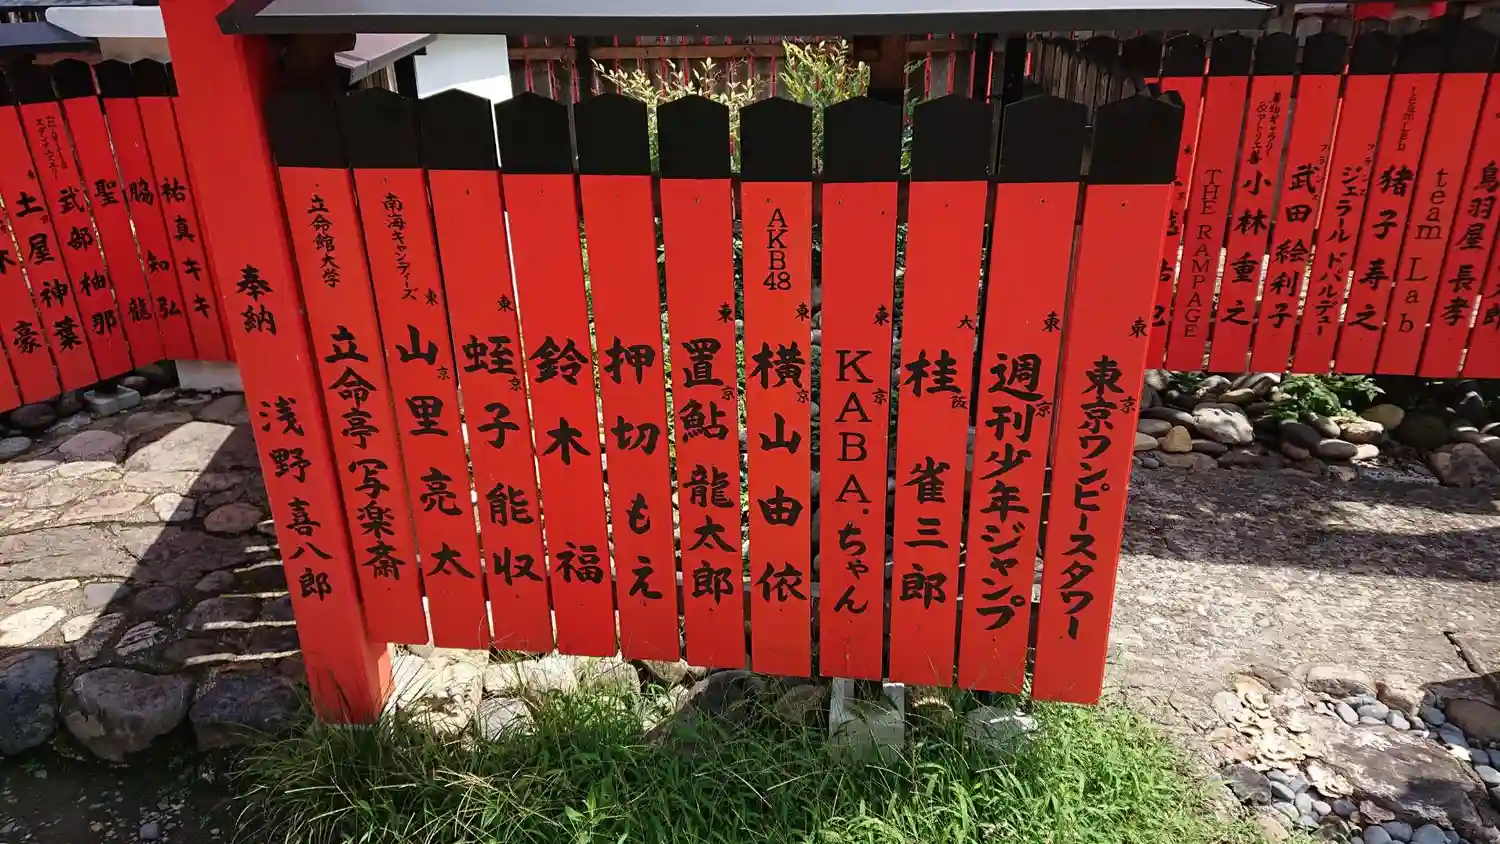 東京 東京ワンピースタワー
東京 週刊少年ジャンプ
大阪 桂 雀三郎
東京 KABA.ちゃん
AKB48 東京 横山由依
東京 置鮎龍太郎
押切もえ
鈴木 福
東京 蛭子能収
南海キャンディーズ 東京 山里亮太
立命館大学 立命亭写楽斎
奉納 浅野喜八郎
鳥羽屋長孝
team Lab
teamLab 猪子寿之
フランス ジェラルドパルデュー
武田絵利子
着物ギャラリー&アトリエ善 小林重之
THE RAMPAGE
祐真キキ
脇 知弘
聖 龍
武部柚那
土屋神葉
豪